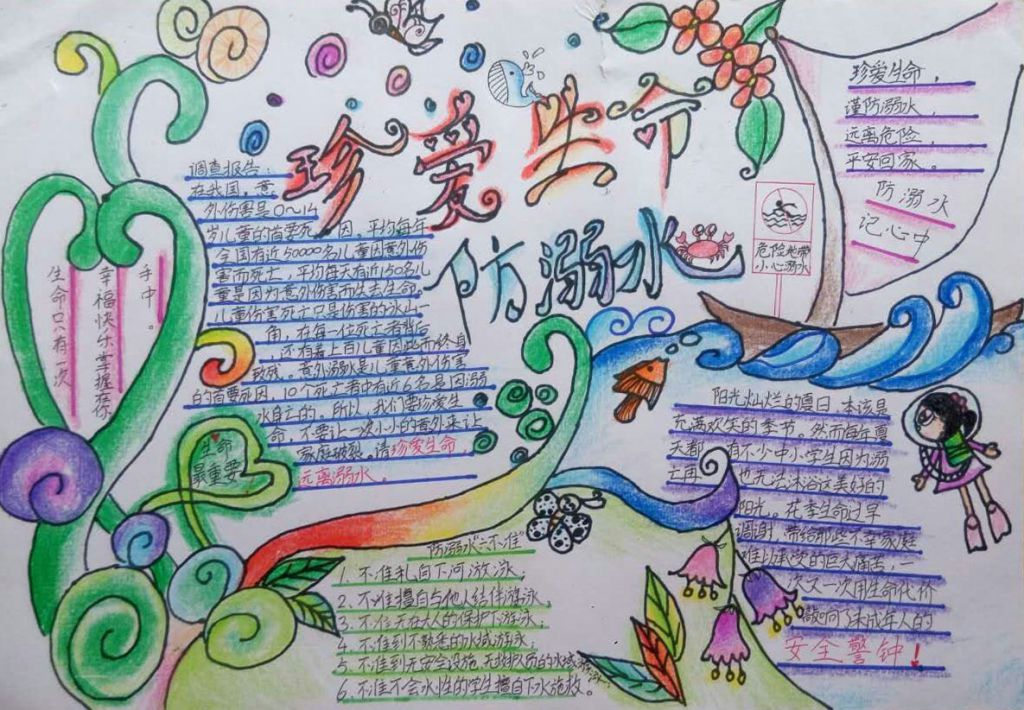 珍爱生命
防溺水
调查报告:
在我国,意
外伤害是0~14
岁儿童的首要死因,平均每年
全国有近50000名儿童因意外伤
害而死亡,平均每天有近150名儿
童是因为意外伤害而失去生命。
儿童伤害死亡只是伤害的冰山一
角,在每一位死亡者背后
还有着上百儿童因此而终身
致残。意外溺水是儿童意外伤害
的首要死因,10个死亡者中有近6名是因溺
水身亡的。所以,我们要珍爱生
命,不要让一次小小的意外来让
家庭破裂。请珍爱生命,
远离溺水。
生命只有一次
幸福快乐掌握在你
手中。
生命
最重要
防溺水"六不准"
1、不准私自下河游泳;
2、不准擅自与他人结伴游泳;
3、不准无在大人的保护下游泳;
4、不准到不熟悉的水域游泳;
5、不准到无安全设施、无救护人员的水域游泳;
6、不准不会水性的学生擅自下水施救。
危险地带
小心溺水
珍爱生命,
谨防溺水,
远离危险,
平安回家。
防溺水
记心中
阳光灿烂的夏日,本该是
充满欢笑的季节。然而每年夏
天都有不少中小学生因为溺
亡再也无法沐浴这美好的
阳光。在李生命过早
凋谢,带给那些不幸家庭
难以承受的巨大痛苦,一
次又一次用生命代价
敲响了未成年人的
安全警钟!